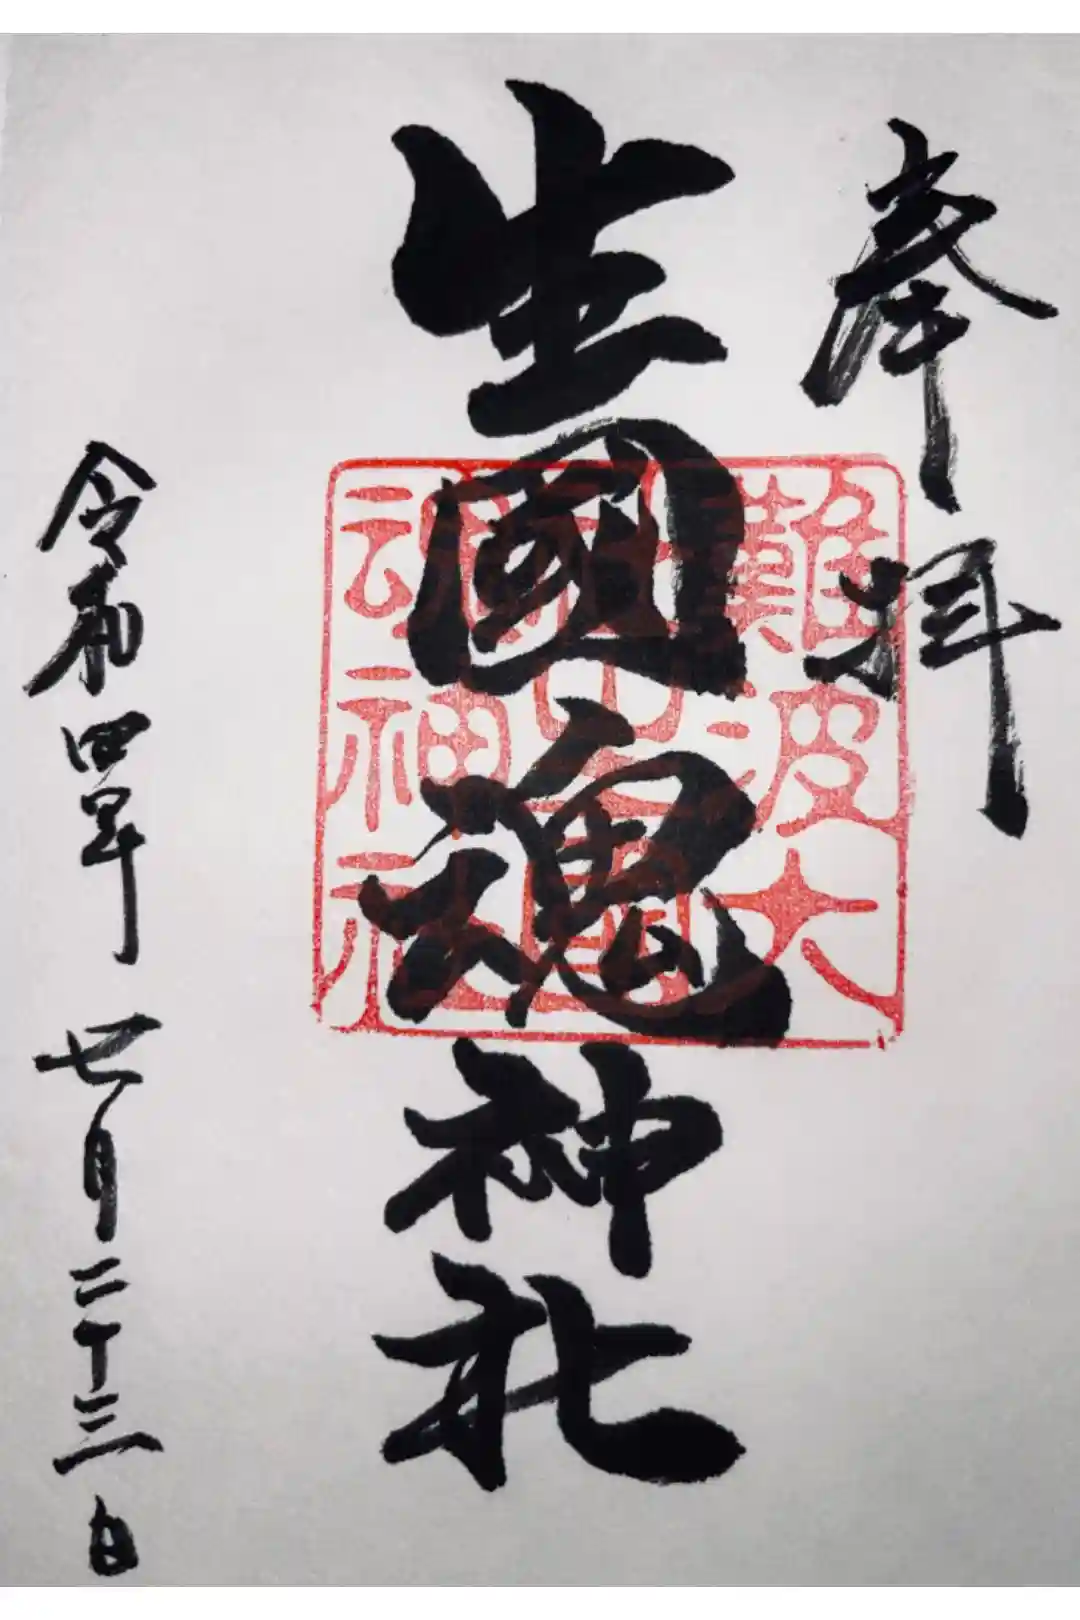 奉拝
生國魂神社
難波大
魂神社
令和四年七月二十三日